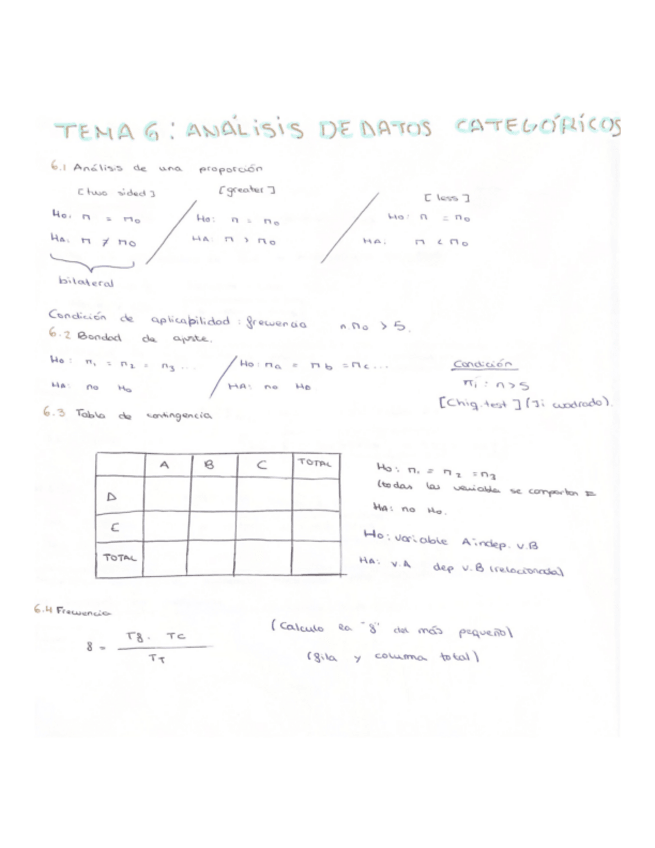 TEMA 6: ANÁLISIS DE DATOS CATEGÓRICOS
6.1 Análisis de una proporción
[two sided] [greater] [less]
Ho: π = πo Ho: π = πo Ho: π = πo
HA: π ≠ πo HA: π > πo HA: π < πo
bilateral
Condición de aplicabilidad: frecuencia n·πo > 5.
6.2 Bondad de ajuste.
Ho: π1 = π2 = π3 ... Ho: πa = πb = πc... Condición
HA: no Ho HA: no Ho πi · n > 5
[Chiq.test] (Ji cuadrado).
6.3 Tabla de contingencia
A B C TOTAL
D
C
TOTAL
Ho: π1 = π2 = π3
(todas las variable se comportan =
HA: no Ho.
Ho: variable A indep. v.B
HA: v.A dep v.B (relacionada)
6.4 Frecuencia
f = Tf · Tc
TT
(Calculo la "f" del más pequeño)
(fila y columna total)